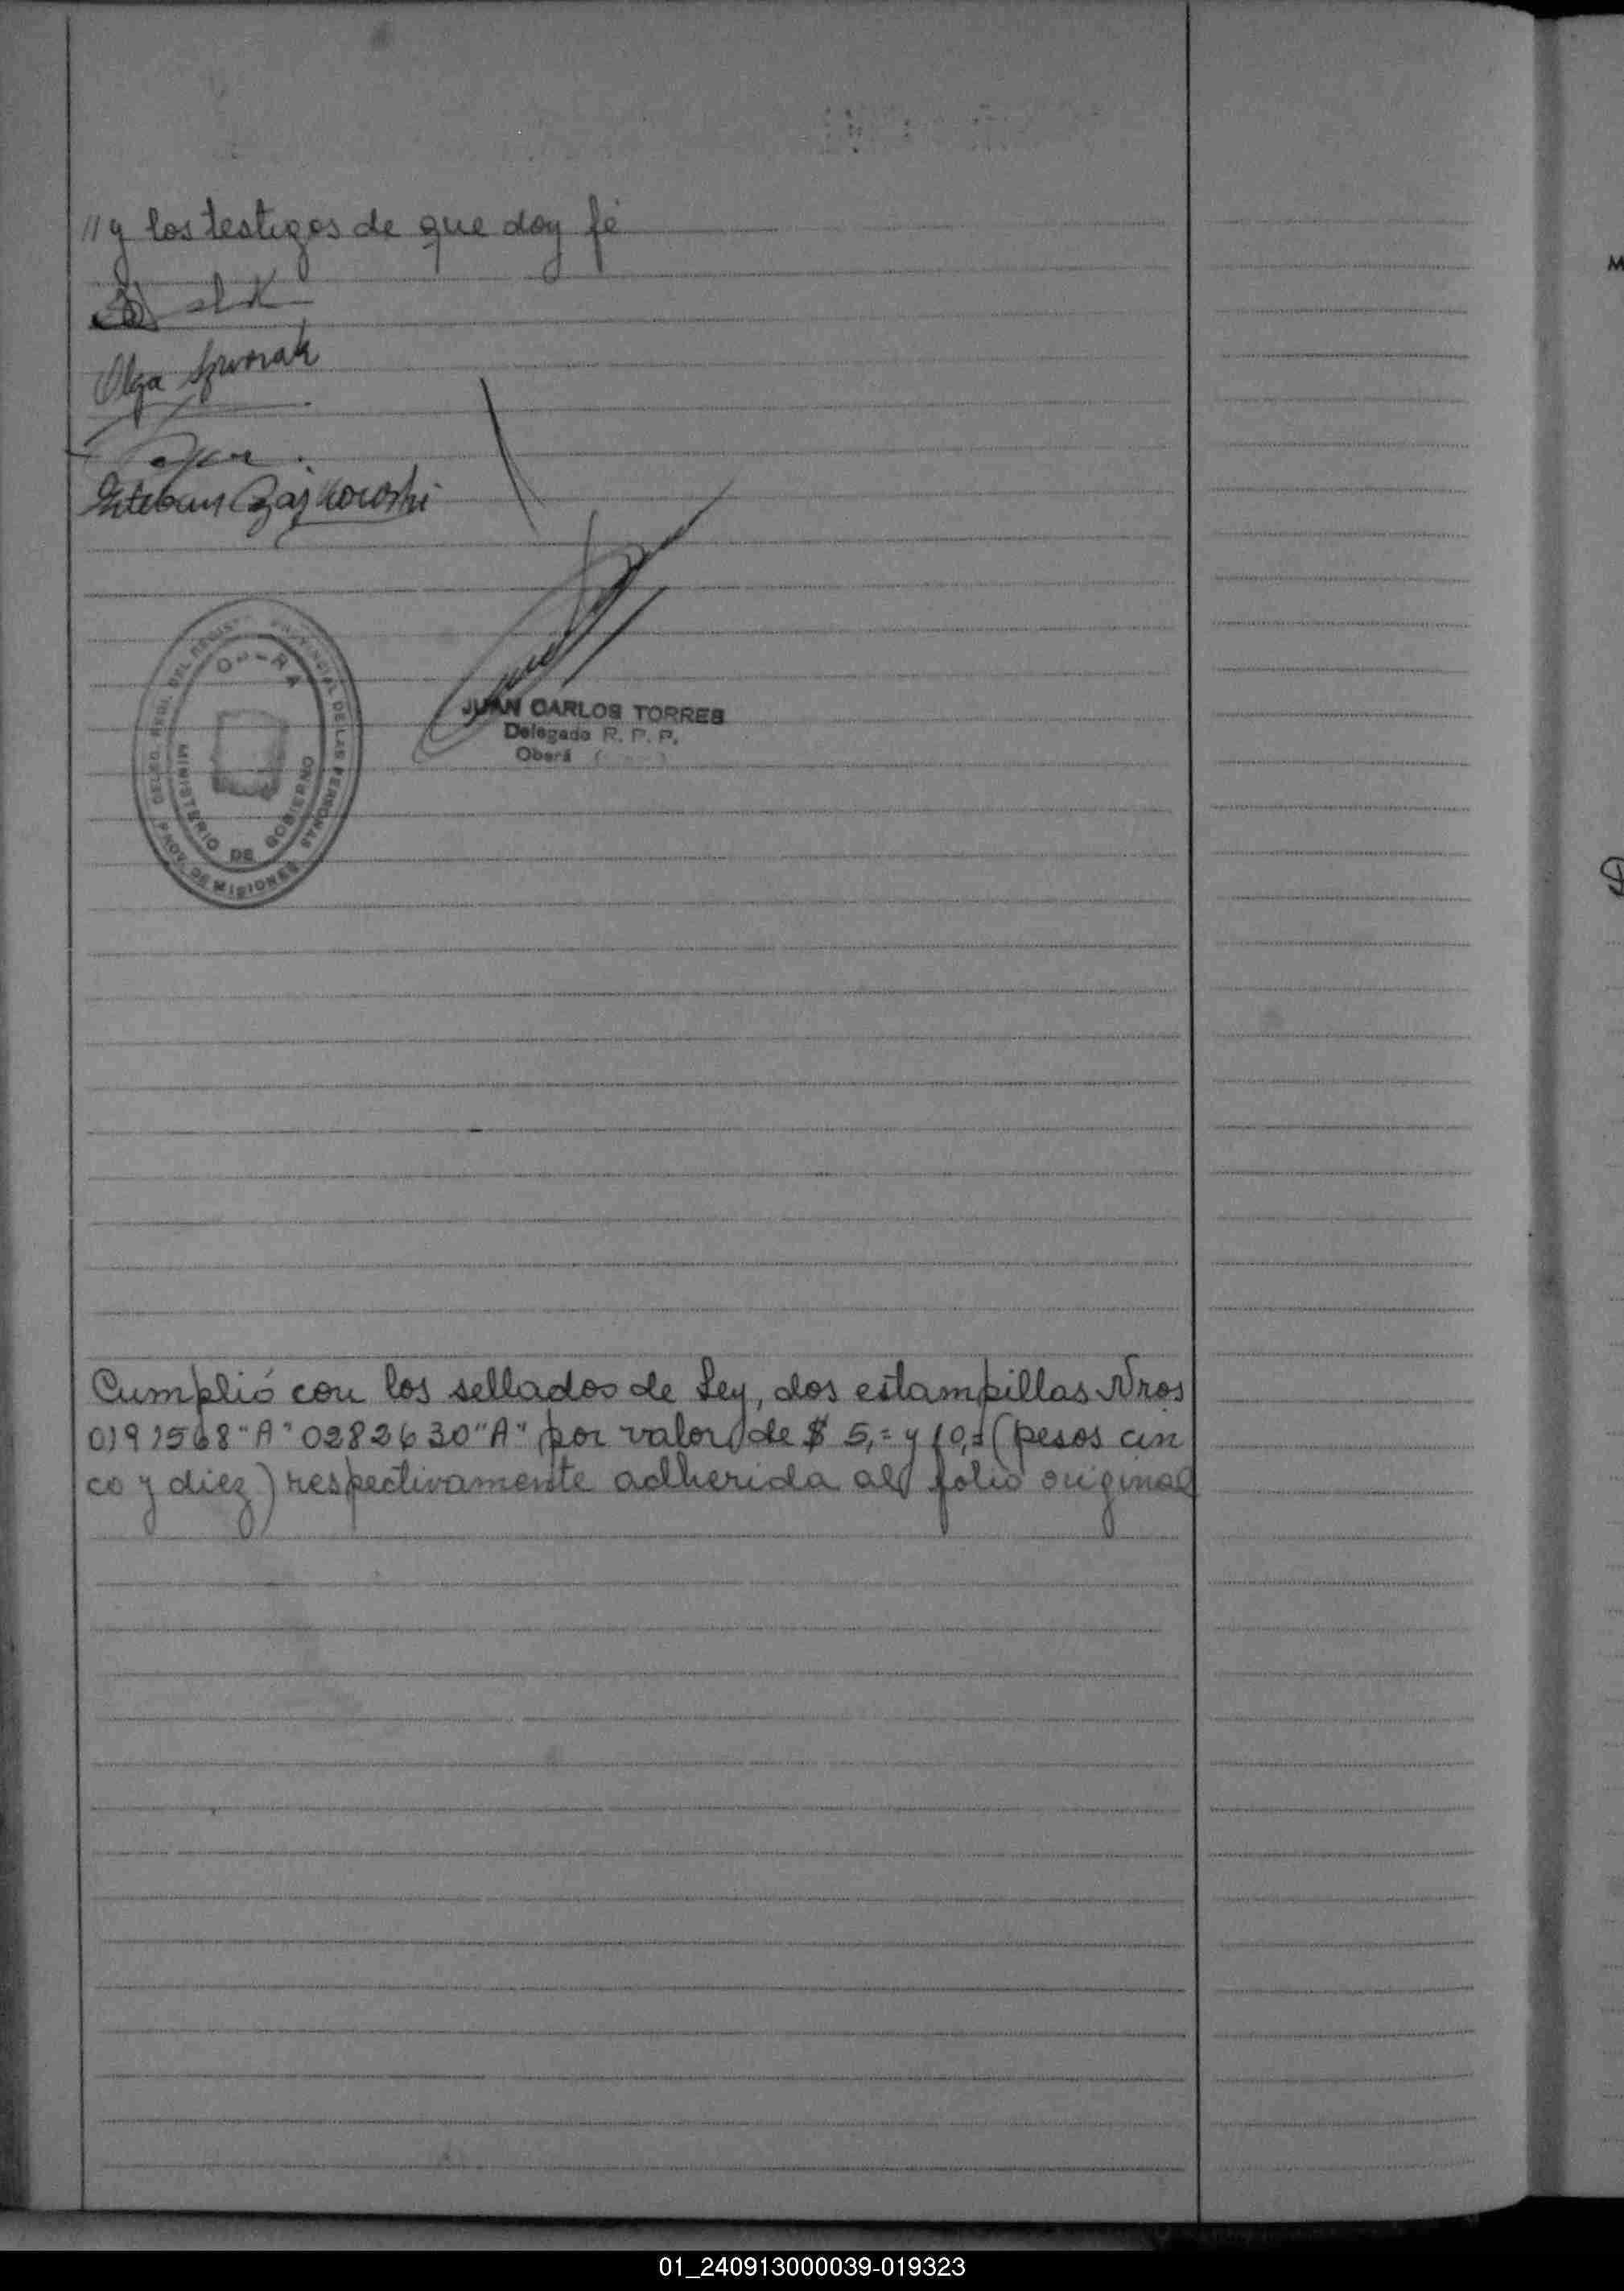 // y los testigos de que doy fé
Olga Szworak
Esteban Zajkowski
JUAN CARLOS TORRES
Delegado R. P. P.
Oberá
PROVINCIAL DE LAS PERSONAS
PROV. DE MISIONES
MINISTERIO DE GOBIERNO
Cumplió con los sellados de Ley, dos estampillas Nros
0191568 "A" 0282630 "A" por valor de $ 5,= y 10,= (pesos cin
co y diez) respectivamente adherida al folio original
01_240913000039-019323